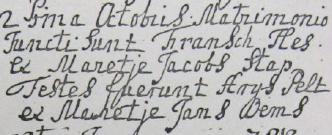 2 5ma Octobris Matrimonio
Juncti Sunt Fransch Hes.
ex Maretje Jacobs Stap
Testes fuerunt Arys Pelt
ex Maretje Jans Wems